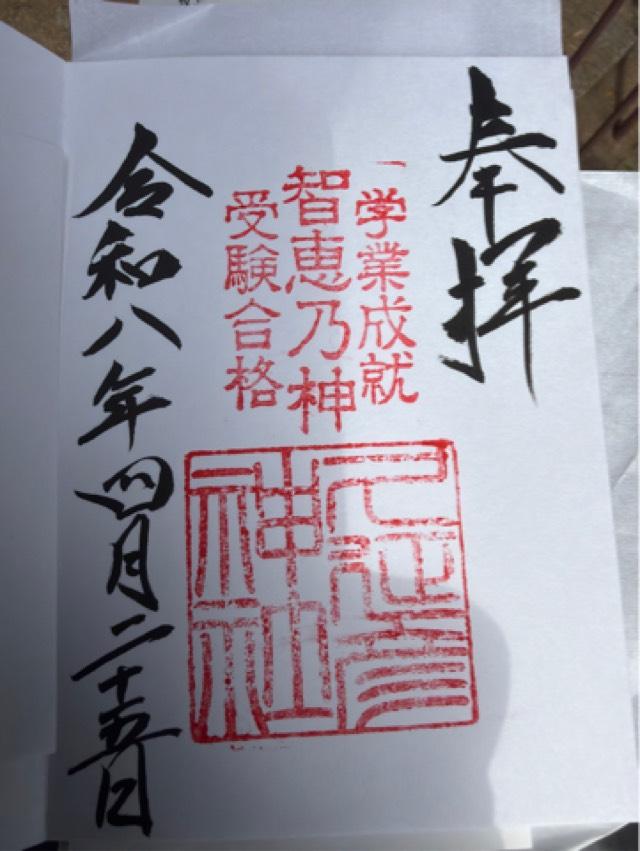 奉拝
学業成就
智恵乃神
受験合格
久延彦
神社
令和八年四月二十五日